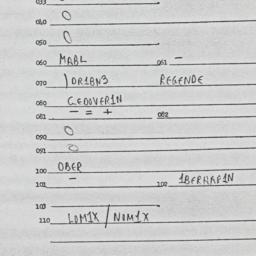 033
040 0
050 0
060 MABL 061 –
070 1DR1BN3 REGENDE
080 GEDOVER1N
081 – = + 082
090 0
091 0
100 OBEP
101 – 102 1BERHAP1N
103
110 LOM1X / NOM1X